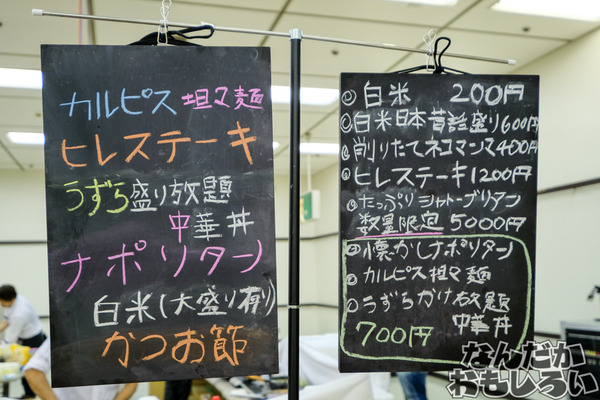 カルピス 坦々麺
ヒレステーキ
うずら盛り放題
中華丼
ナポリタン
白米(大盛り有り)
かつお節
◎白米 200円
◎白米日本昔話盛り600円
◎削りたてネコマンマ400円
◎ヒレステーキ1200円
◎たっぷりシャトーブリアン
数量限定 5000円
◎懐かしナポリタン
◎カルピス担々麺
◎うずらかけ放題
700円 中華丼
なんだか
おもしろい